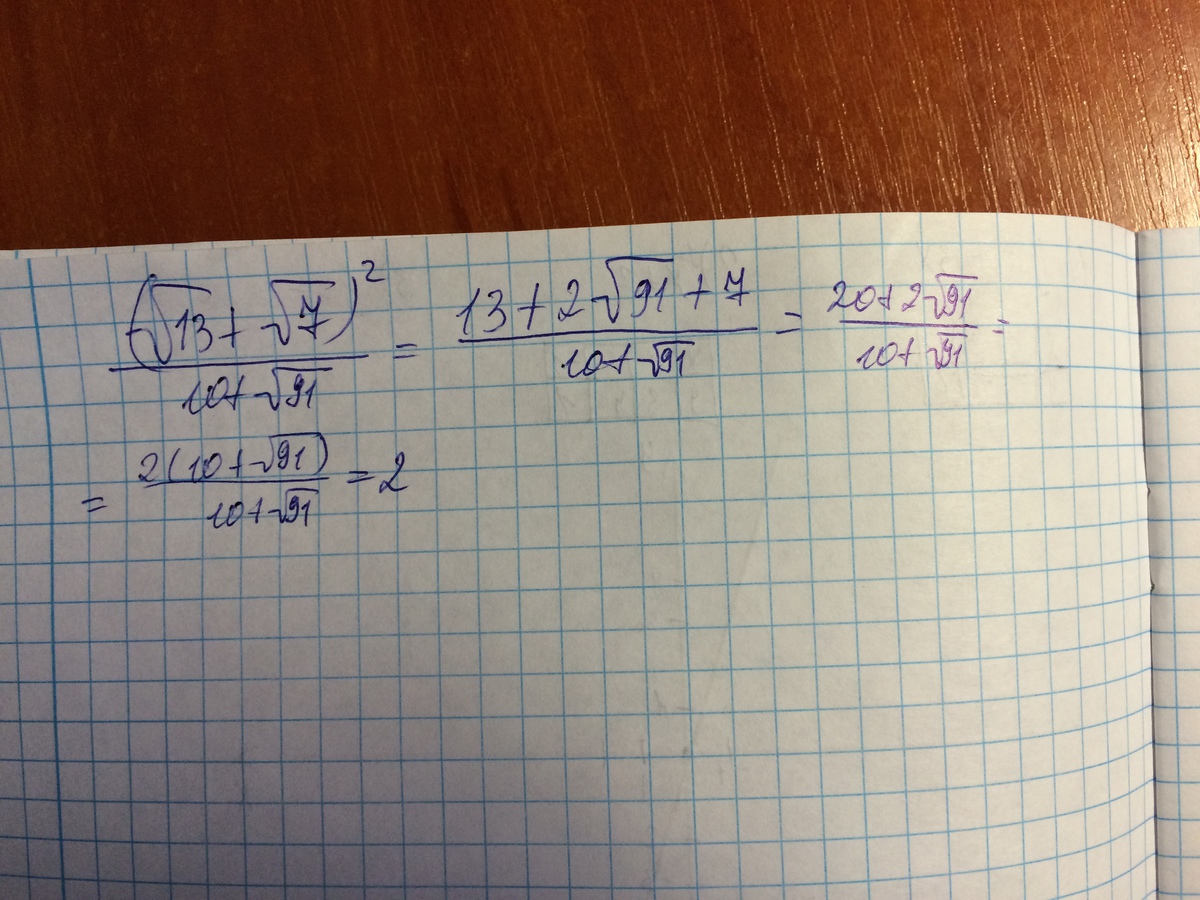 (√13 + √7)² / (10 + √91) = (13 + 2√91 + 7) / (10 + √91) = (20 + 2√91) / (10 + √91) =
= 2(10 + √91) / (10 + √91) = 2